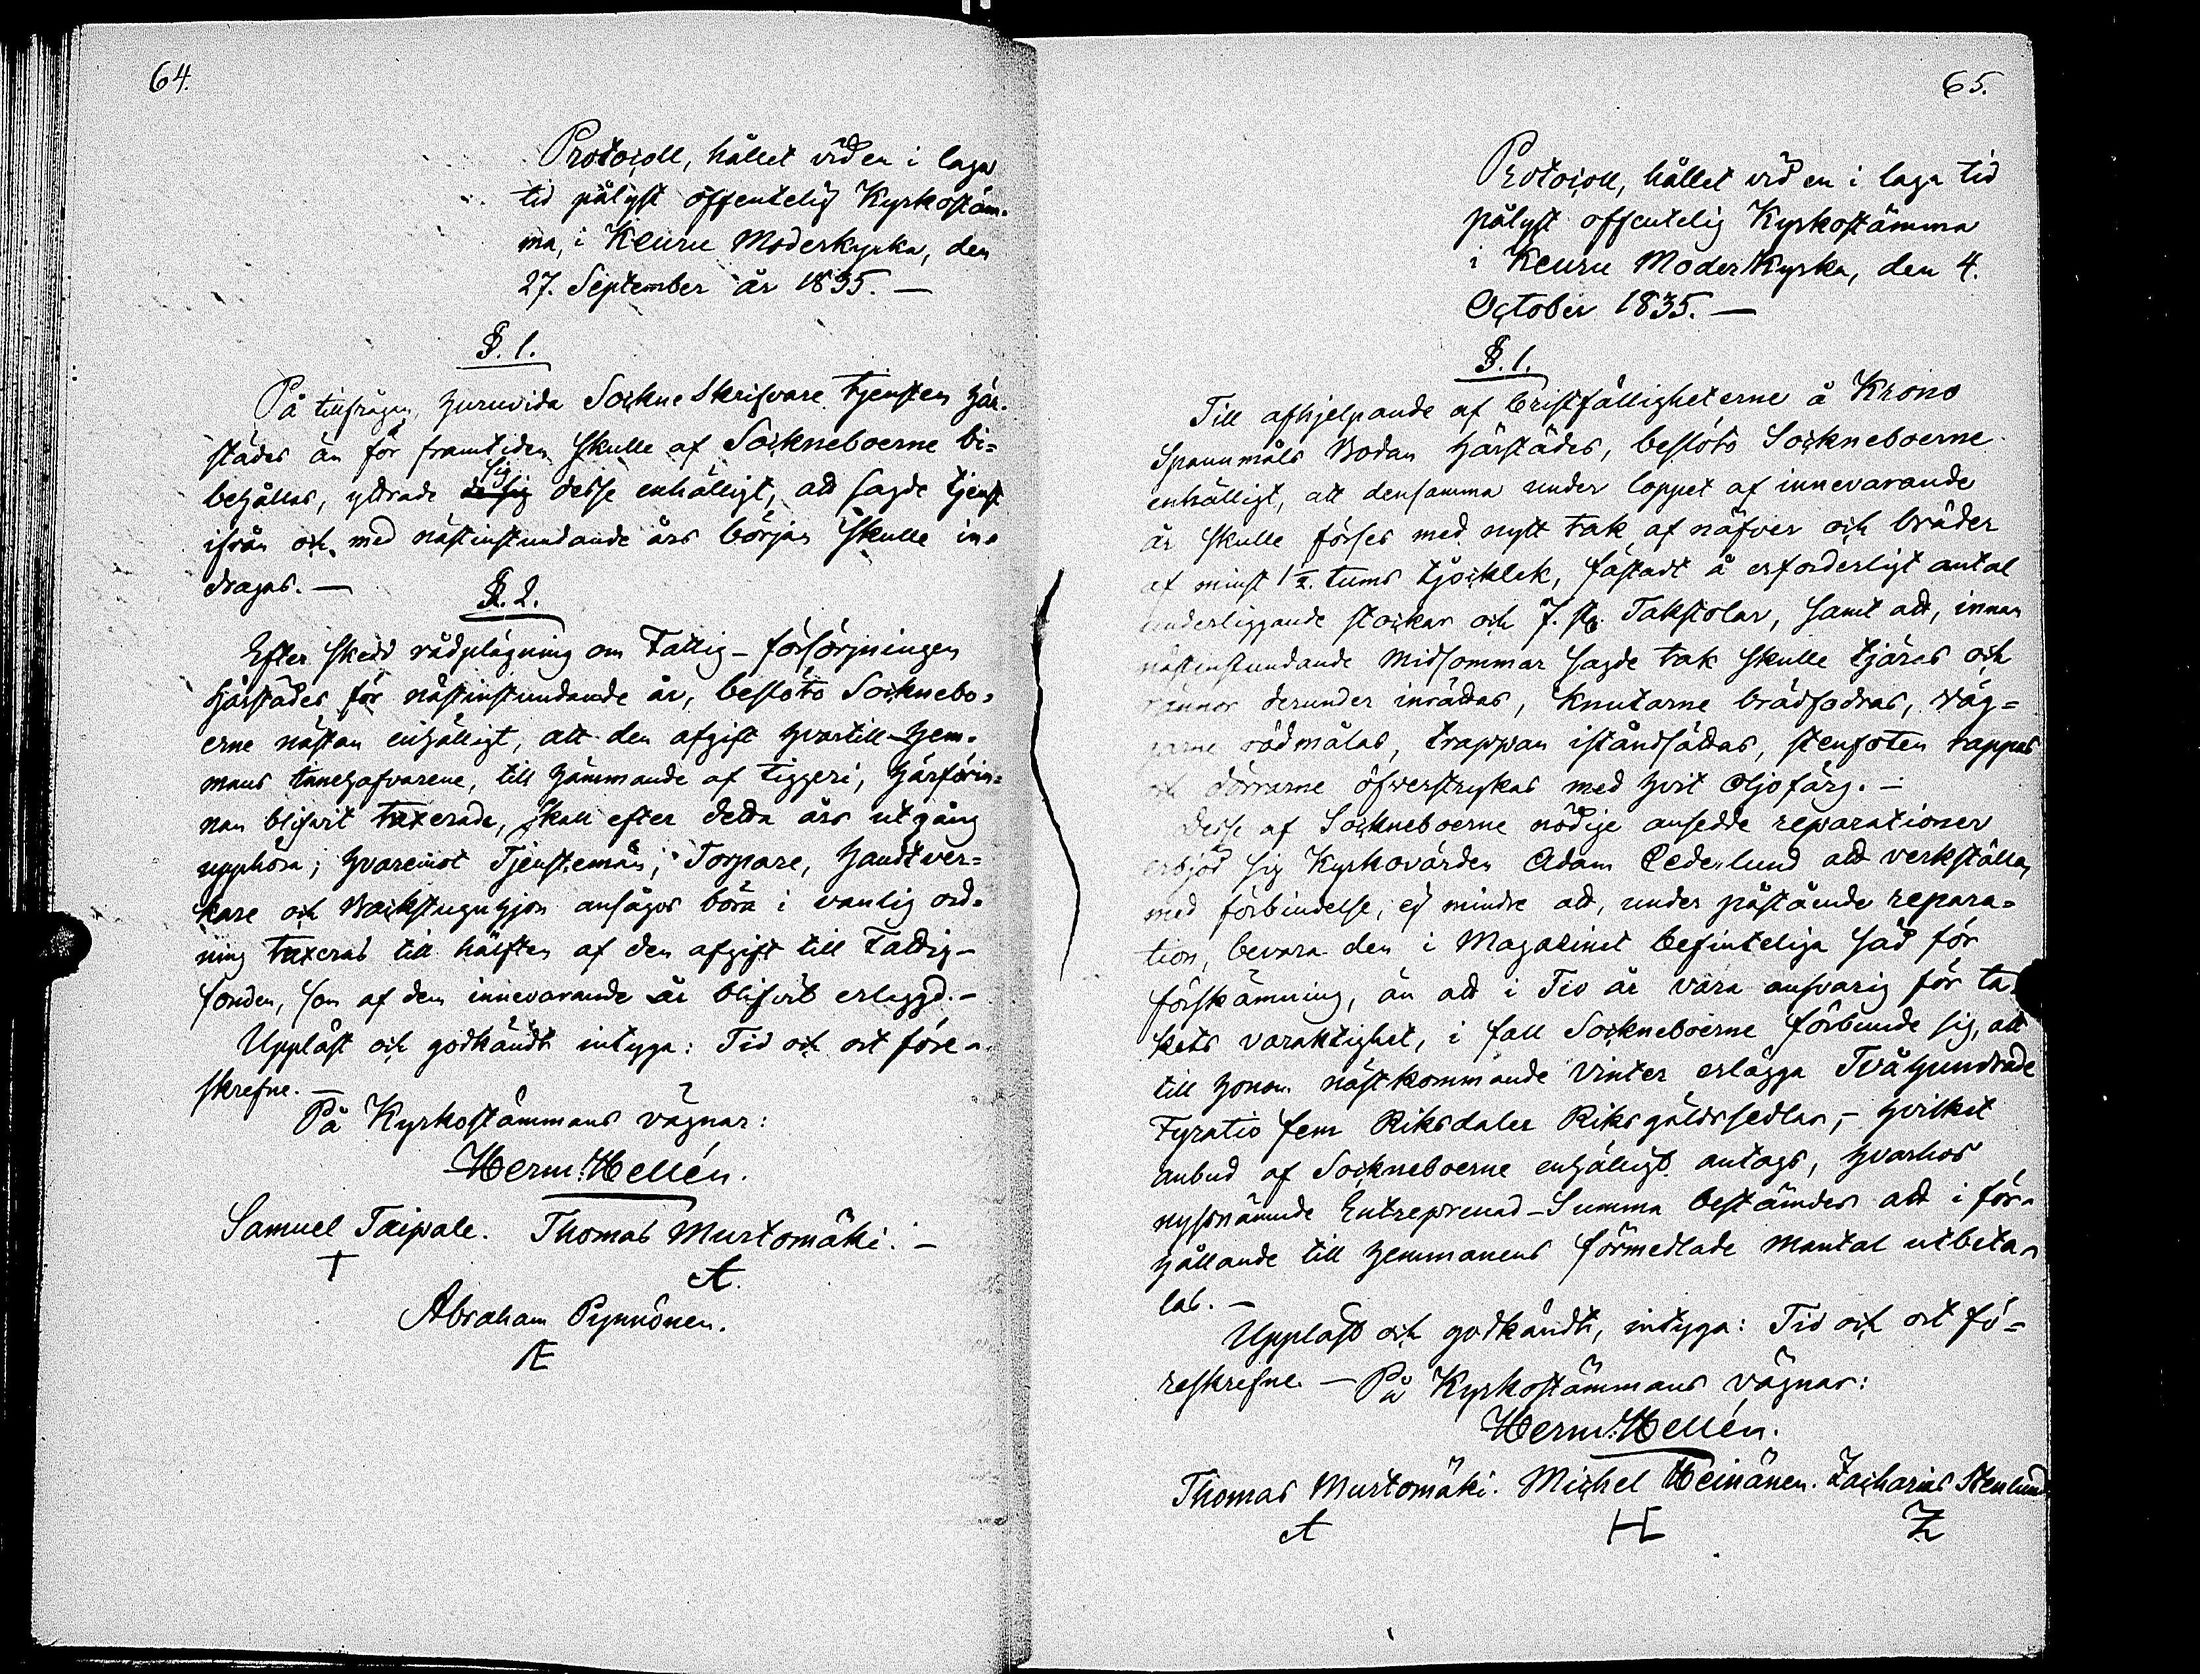 64.
Protocoll, hållet vid en i laga
tid pålyst offentelig Kyrkostäm-
ma, i Keuru Moderkyrka, den
27. September år 1835. —
§. 1.
På tillfrågan, huruvida Sockne Skrifvare tjensten här-
städes än för framtiden skulle af Sockneboerne bi-
behållas, yttrade sig desse enhälligt, att sagde tjenst
ifrån och med nästinstundande års början skulle in-
dragas. —
§. 2.
Efter skedd rådplägning om Fattig-försörjningen
härstädes för nästinstundande år, beslöto Socknebo-
erne nästan enhälligt, att den afgift hvartill Hem-
mans innehafvarene, till hämmande af tiggeri, härförin-
nan blifvit taxerade, skall efter detta års utgång
upphöra; hvaremot Tjenstemän, Torpare, Handtver-
kare och Backstuguhjon ansågos böra i vanlig ord-
ning taxeras till hälften af den afgift till Fattig-
fonden, som af dem innevarande år blifvit erlaggd. —
Uppläst och godkändt intyga: Tid och ort före-
skrefne. —
På Kyrkostämmans vägnar:
Herm: Hellén.
Samuel Taipale. Thomas Murtomäki. —
Abraham Pynnönen.
65.
Protocoll, hållet vid en i laga tid
pålyst offentelig Kyrkostämma
i Keuru ModerKyrka, den 4.
October 1835. —
§. 1.
Till afhjelpande af bristfälligheterne å Krono
Spannmåls Bodan härstädes, beslöto Sockneboerne
enhälligt, att densamma under loppet af innevarande
år skulle förses med nytt tak af näfver och bräder
af minst 1 1/2. tums tjocklek, fästadt å erforderligt antal
underliggande stockar och 7. st. Takstolar, samt att, innan
nästinstundande Midsommar sagde tak skulle tjäras och
rännor derunder inrättas, Knutarne brädfodras, väg-
garne rödmålas, trappan iståndsättas, stenfoten rappas
och dörrarne öfverstrykas med hvit Oljofärg. —
Desse af Sockneboerne nödige ansedde reparationer
erbjöd sig Kyrkovärden Adam Cederlund att verkställa,
med förbindelse, ej mindre att, under påstående repara-
tion, bevara den i Magazinet befinteliga säd för
förskämning, än att i Tio år vara ansvarig för ta-
kets varaktighet, i fall Sockneboerne förbunde sig, att
till honom nästkommande Vinter erlägga Tvåhundrade
Fyratio fem Riksdaler Riksgäldssedlar, — hvilket
anbud af Sockneboerne enhälligt antogs, hvarhos
nyssnämnde Entreprenad-Summa bestämdes att i för-
hållande till Hemmanens förmedlade Mantal utbeta-
las. —
Uppläst och godkändt, intyga: Tid och ort fö-
reskrefne. — På Kyrkostämmans vägnar:
Herm: Hellén.
Thomas Murtomäki. Michel Heinänen. Zacharias Stenlund
H Z